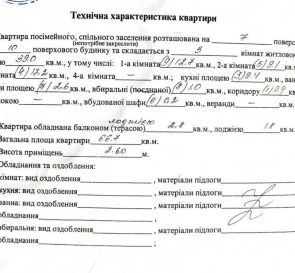 Технічна характеристика квартири
квартира посімейного, спільного заселення розташована на 7 поверсі
(непотрібне закреслити)
10 поверхового будинку та складається з 3 кімнат житловою
39.0 кв.м., у тому числі: 1-а кімната 12.7 кв.м., 2-а кімната
12.2 кв.м., 4-а кімната — кв.м.; кухні площею кв.м., ван
площею 2.6 кв.м., вбиральні (поєднаної) 1.0 кв.м., коридору
— кв.м., вбудованої шафи 0.2 кв.м., веранди — кв.м.
лоджією
Квартира обладнана балконом (терасою) 2.8 кв.м., лоджією 1.8 кв.м.
Загальна площа квартири 66.7 кв.м.
Висота приміщень 2.60 м.
Обладнання та оздоблення:
кімнат: вид оздоблення , матеріали підлоги
кухня: вид оздоблення , матеріали підлоги
ванна: вид оздоблення , матеріали підлоги
обладнання ;
вбиральня: вид оздоблення , матеріали підлоги
обладнання ;